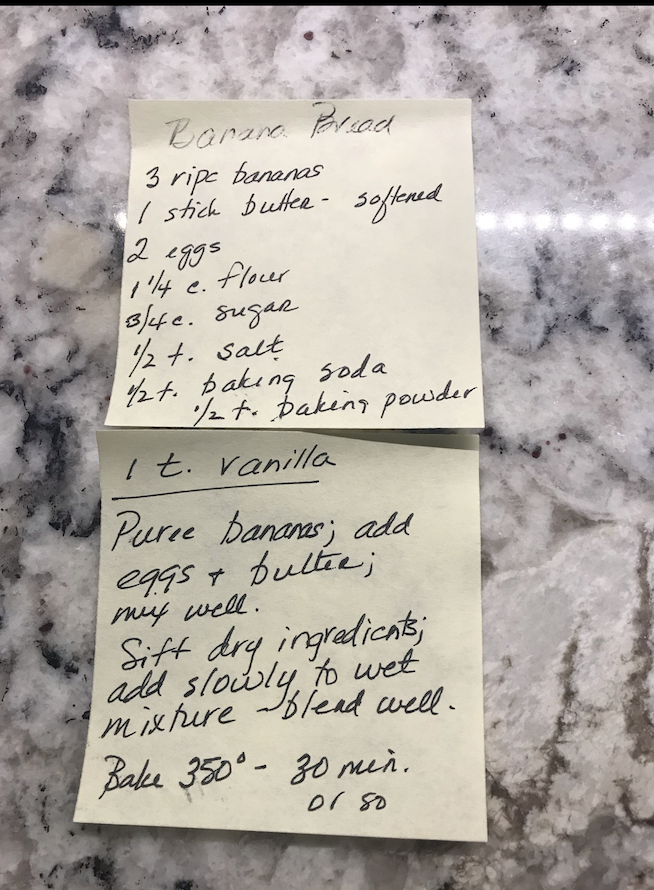 Banana Bread
3 ripe bananas
1 stick butter - softened
2 eggs
1 1/4 c. flour
3/4 c. sugar
1/2 t. salt
1/2 t. baking soda
1/2 t. baking powder
1 t. vanilla
Puree bananas; add
eggs + butter;
mix well.
Sift dry ingredients;
add slowly to wet
mixture - blend well.
Bake 350° - 30 min.
or so